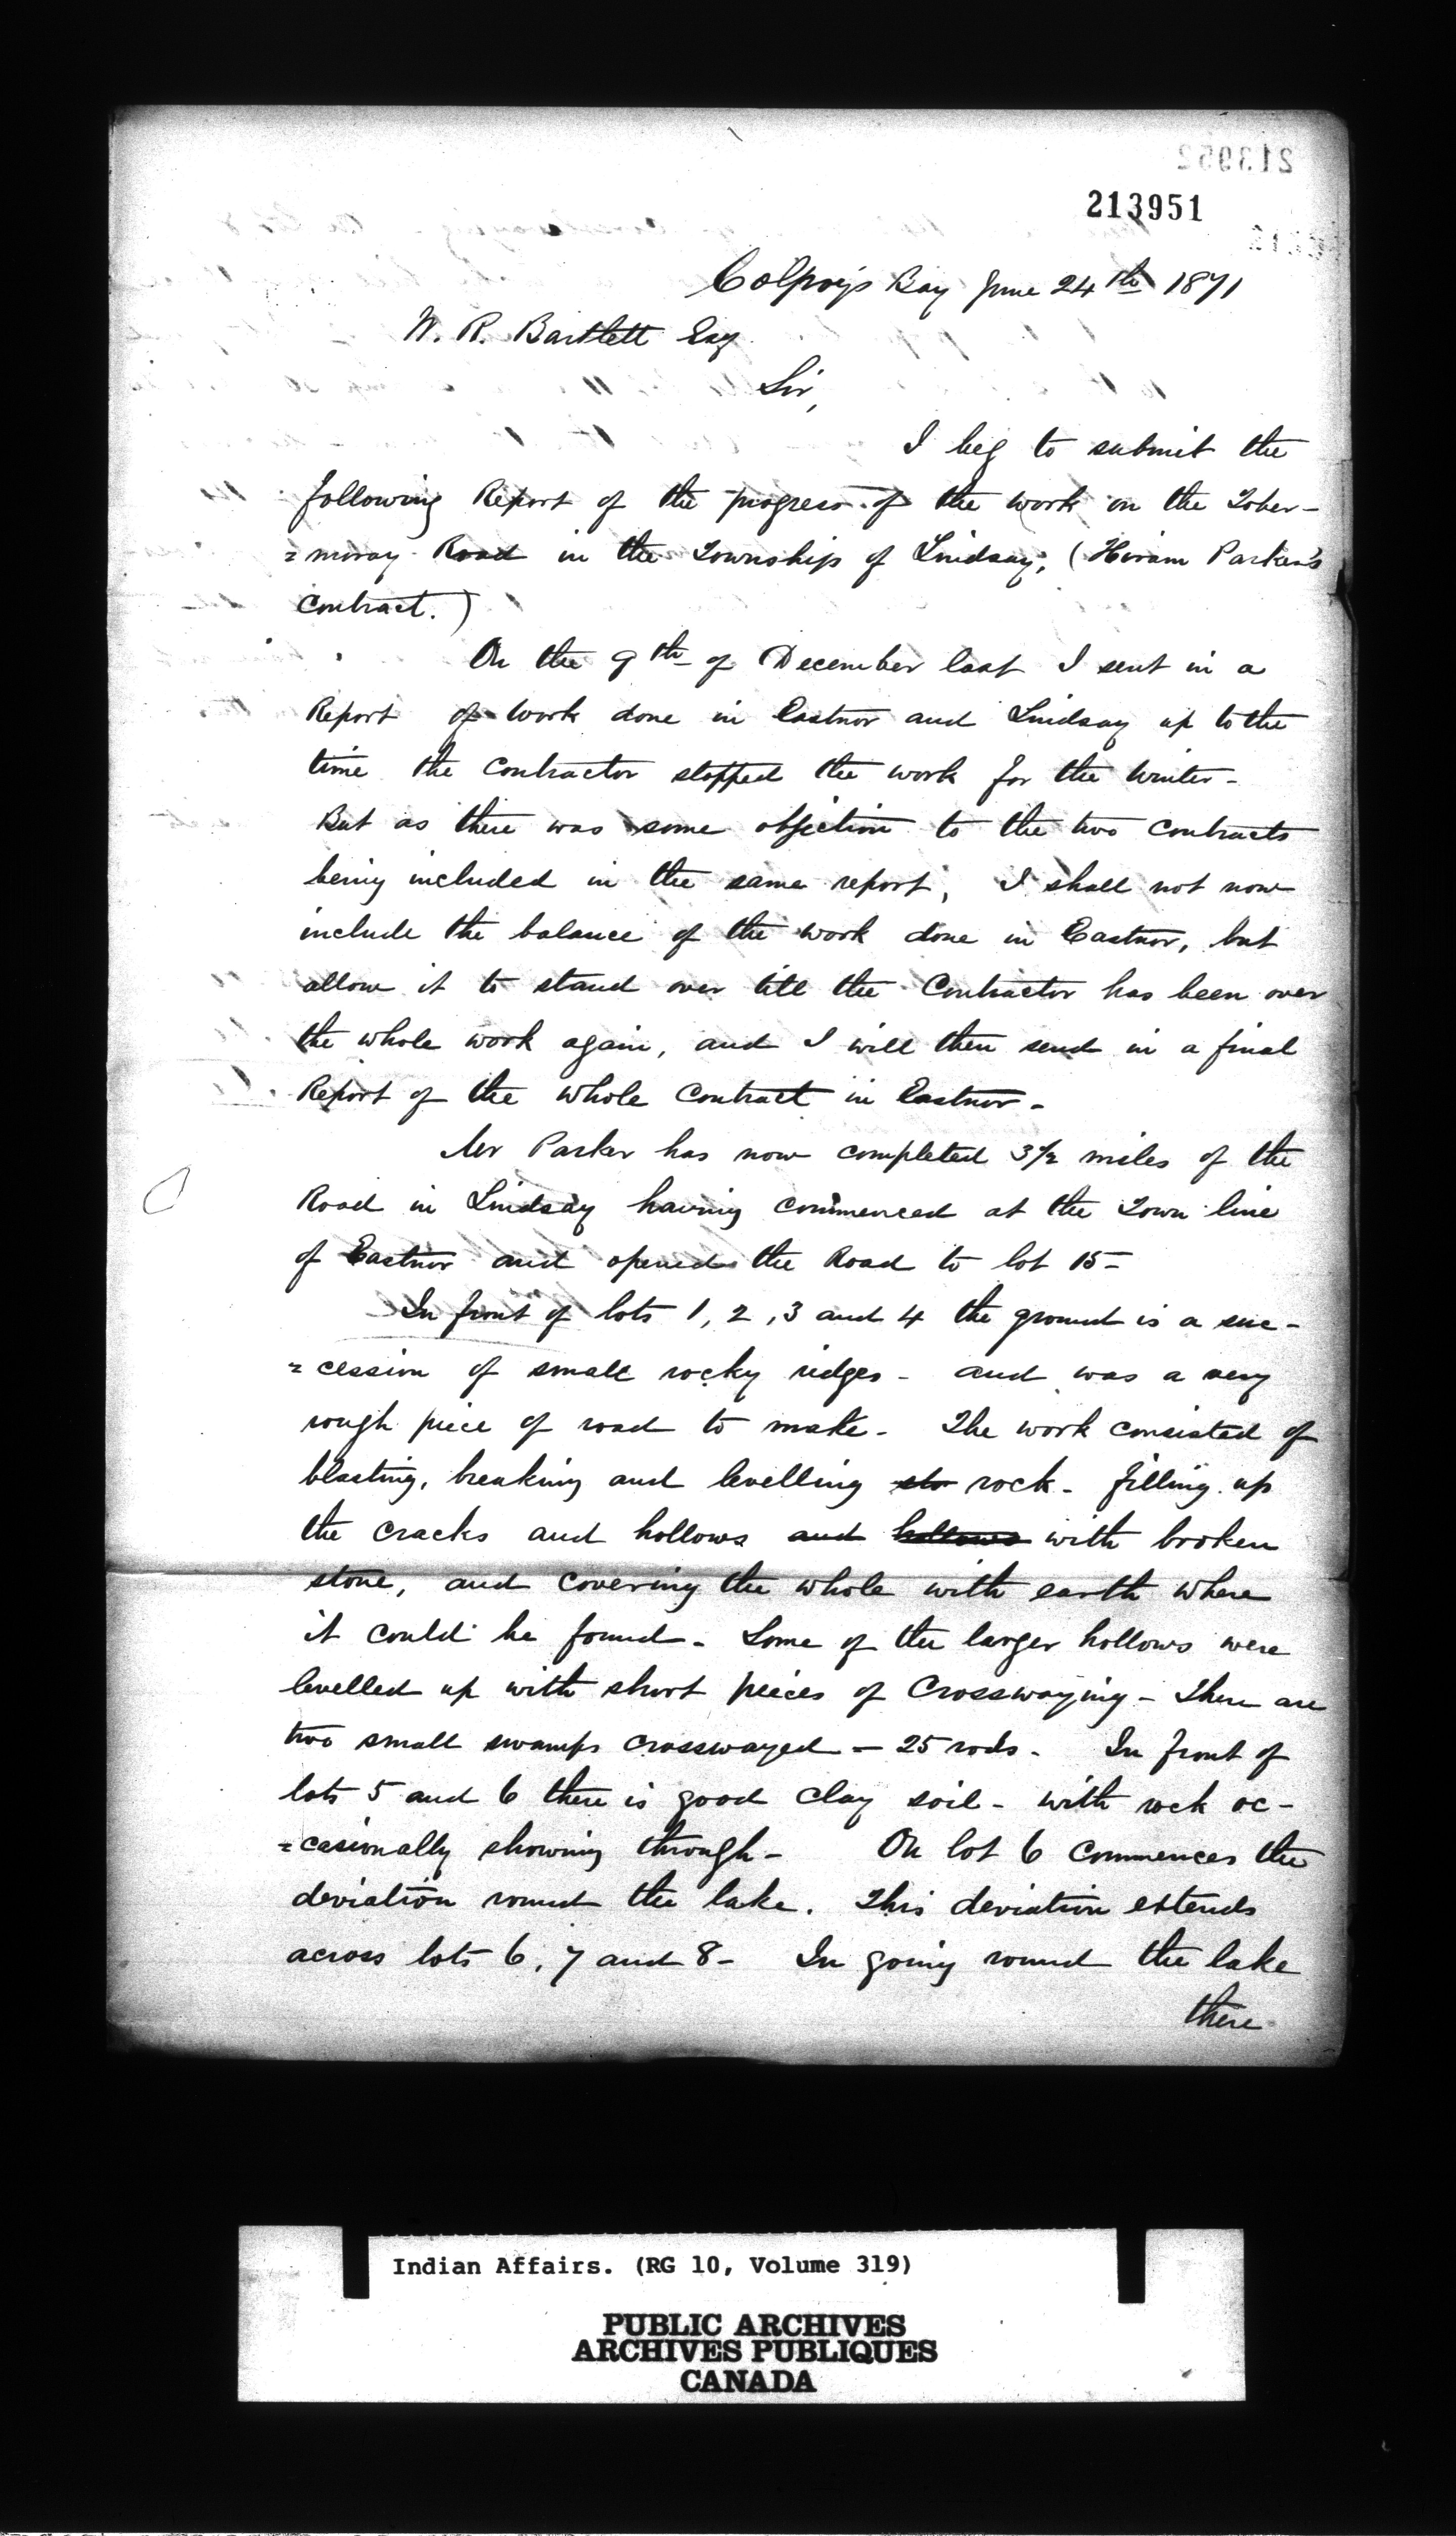 213952
213951
Colpoys Bay June 24th 1871
W. R. Bartlett Esq
Sir,
I beg to submit the
following Report of the progress of the work on the Tober-
=moray Road in the Township of Lindsay, (Hiram Parker's
Contract.)
On the 9th of December last I sent in a
Report of work done in Eastnor and Lindsay up to the
time the Contractor stopped the work for the Winter-
But as there was some objection to the two Contracts
being included in the same report, I shall not now
include the balance of the work done in Eastnor, but
allow it to stand over till the Contractor has been over
the whole work again, and I will then send in a final
Report of the whole Contract in Eastnor-
Mr Parker has now completed 3½ miles of the
Road in Lindsay having commenced at the Town line
of Eastnor and opened the Road to lot 15-
In front of lots 1, 2, 3 and 4 the ground is a suc-
=cession of small rocky ridges- and was a very
rough piece of road to make- The work consisted of
blasting, breaking and levelling sto rock- filling up
the cracks and hollows and hollows with broken
stone, and covering the whole with earth where
it could be found- Some of the larger hollows were
levelled up with short pieces of Crosswaying- There are
two small swamps crosswayed- 25 rods- In front of
lots 5 and 6 there is good clay soil- with rock oc-
=casionally showing through- On lot 6 commences the
deviation round the lake. This deviation extends
across lots 6, 7 and 8- In going round the lake
there
Indian Affairs. (RG 10, Volume 319)
PUBLIC ARCHIVES
ARCHIVES PUBLIQUES
CANADA